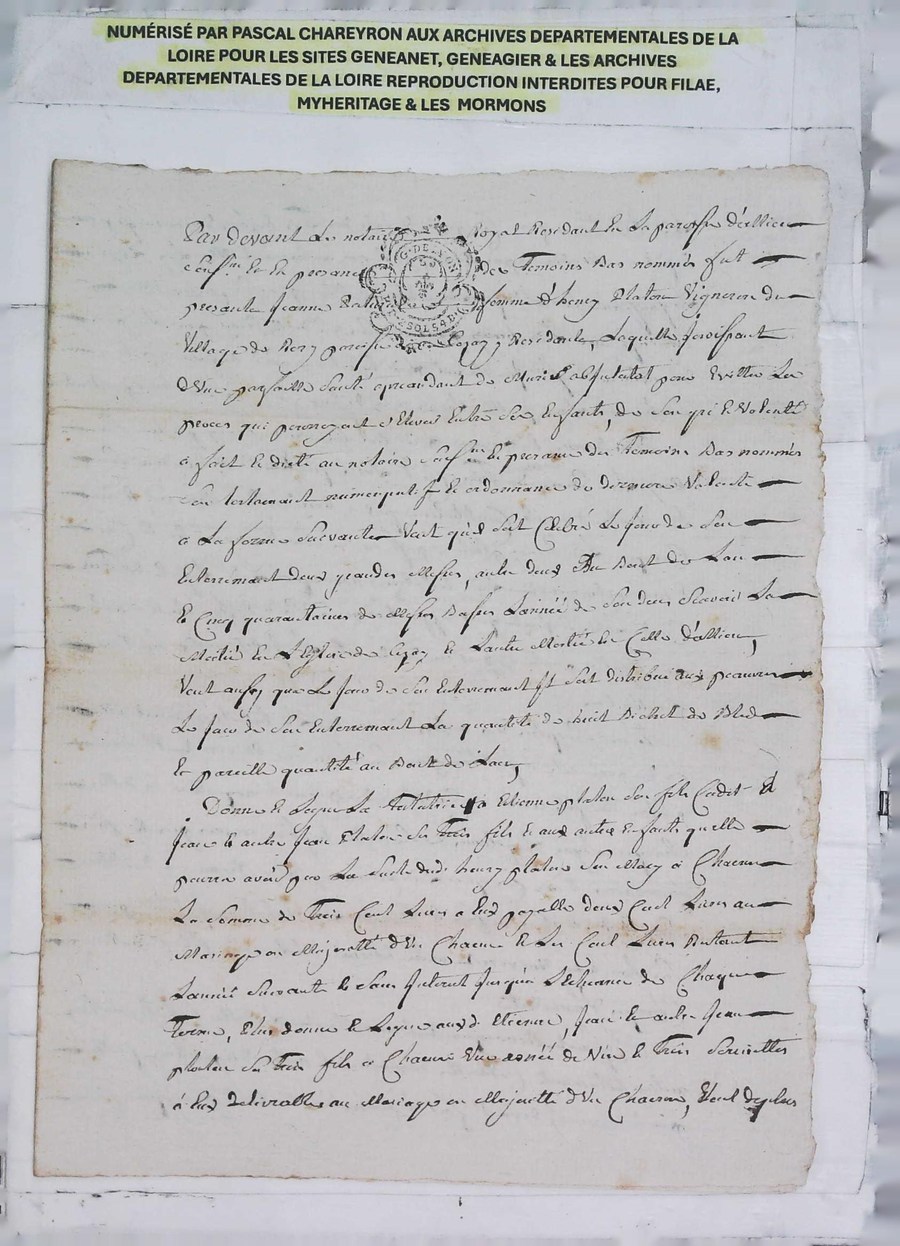 NUMÉRISÉ PAR PASCAL CHAREYRON AUX ARCHIVES DEPARTEMENTALES DE LA
LOIRE POUR LES SITES GENEANET, GENEAGIER & LES ARCHIVES
DEPARTEMENTALES DE LA LOIRE REPRODUCTION INTERDITES POUR FILAE,
MYHERITAGE & LES MORMONS
Par devant Le notaire Royal Resident En La paroisse d'allieu
Et En presance des Temoins Bas nommés fut
presante Jeanne femme d'henry Platon Vigneron du
Village de paroisse Cezay y Residante, Laquelle Jouissant
d'Une parfaitte Santé apreandant de Mourir abintestat pour Evitter Les
proces qui pourroyent s'Elever Entre Ses Enfants, de Son gré Et Volonté
a fait Et dicté au notaire Et presance des Temoins Bas nommés
Son testament nuncupatif Et ordonnance de derniere Volonté
a La forme Suivante Veut qu'il soit Celebré Le Jour de Son
Enterrement deux grandes Messes, autre deux Au Bout de L'an
Et Cinq quarantaines de Messes Basses L'année de Son deces Scavoir La
Moitié En L'Eglise de Cezay Et L'autre Moitié En Celle d'allieu,
Veut aussy que Le Jour de Son Enterrement soit distribué aux peauvres
Le Jour de Son Enterrement La quantité de huit Bichet de Bled
Et pareille quantité au Bout de L'an,
Donne Et Legue La Testatrice a Etienne platon Son fils Cadet a
Jean Et autre Jean Platon Ses Trois fils Et aux autres Enfants quelle
pourra avoir par La Suitte dud. henry platon Son Mary a Chacun
La Somme de Trois Cent Livres a Eux payable deux Cent Livres au
Mariage ou Majorité d'Un Chacun Et Les Cent Livres Restant
L'année Suivante Et Sans Interet Jusqu'a L'Echeance de Chaque
Terme, Plus donne Et Legue auxd. Etienne, Jean Et autre Jean
platon Ses Trois fils a Chacun Une année de Vin Et Trois Serviettes
à Eux delivrables au Mariage ou Majorité d'Un Chacun, Veut de plus